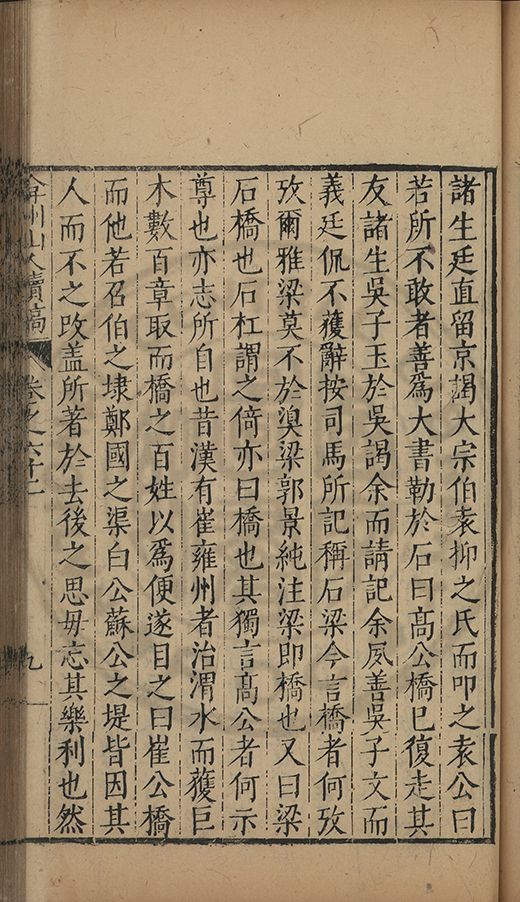 諸生廷直留京謁大宗伯袁抑之氏而叩之袁公曰
若所不敢者善爲大書勒於石曰髙公橋已復走其
友諸生吳子玉於吳謁余而請記余夙善吳子文而
義廷侃不獲辭按司馬所記稱石梁今言橋者何攷
攷爾雅梁莫不於湨梁郭景純注梁即橋也又曰梁
石橋也石杠謂之倚亦曰橋也其獨言髙公者何示
尊也亦志所自也昔漢有崔雍州者治渭水而獲巨
木數百章取而橋之百姓以爲便遂目之曰崔公橋
而他若召伯之埭鄭國之渠白公蘇公之堤皆因其
人而不之改盖所著於去後之思毋忘其樂利也然
弇州山人續稿 卷之六十二 九